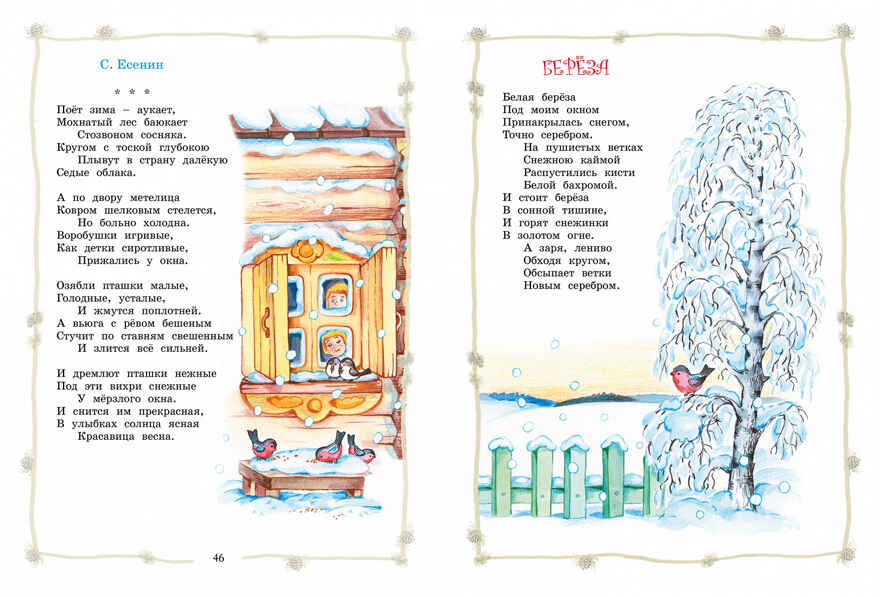 С. Есенин
* * *
Поёт зима – аукает,
Мохнатый лес баюкает
Стозвоном сосняка.
Кругом с тоской глубокою
Плывут в страну далёкую
Седые облака.
А по двору метелица
Ковром шелковым стелется,
Но больно холодна.
Воробушки игривые,
Как детки сиротливые,
Прижались у окна.
Озябли пташки малые,
Голодные, усталые,
И жмутся поплотней.
А вьюга с рёвом бешеным
Стучит по ставням свешенным
И злится всё сильней.
И дремлют пташки нежные
Под эти вихри снежные
У мёрзлого окна.
И снится им прекрасная,
В улыбках солнца ясная
Красавица весна.
46
БЕРЁЗА
Белая берёза
Под моим окном
Принакрылась снегом,
Точно серебром.
На пушистых ветках
Снежною каймой
Распустились кисти
Белой бахромой.
И стоит берёза
В сонной тишине,
И горят снежинки
В золотом огне.
А заря, лениво
Обходя кругом,
Обсыпает ветки
Новым серебром.